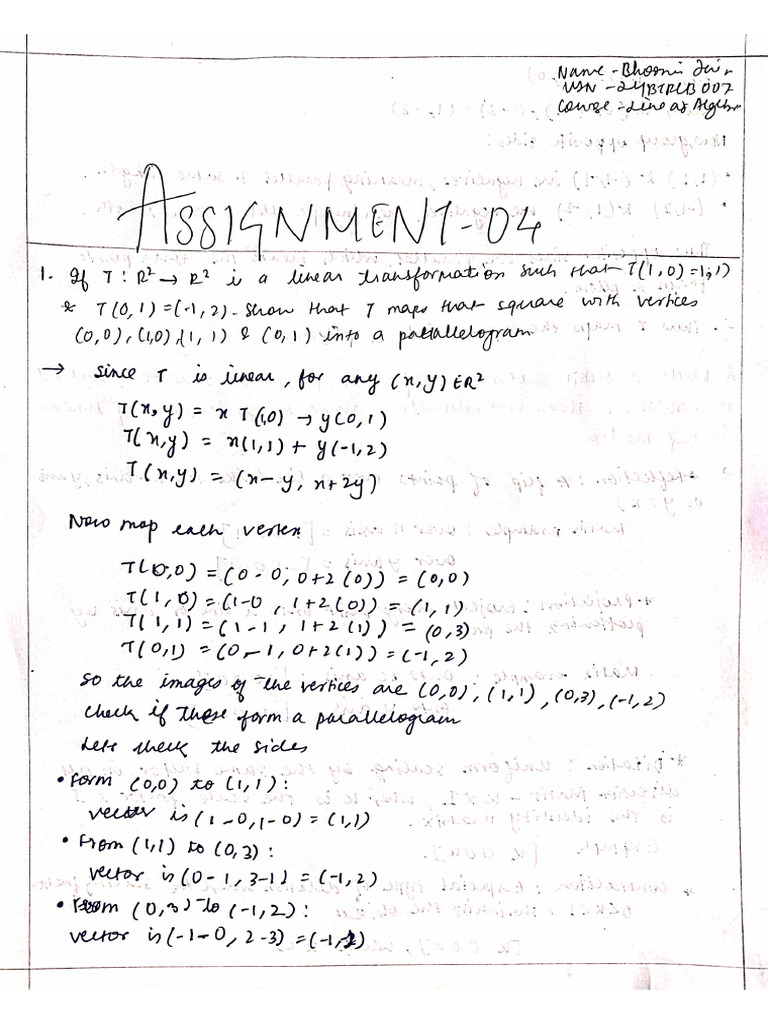 Name - Bhoomi Jain
USN - 24BTRCB007
Course - Linear Algebra
ASSIGNMENT-04
1. If T : R² → R² is a linear transformation such that T(1,0)=1,1)
& T(0,1)=(-1,2). Show that T maps that square with vertices
(0,0), (1,0), (1,1) & (0,1) into a parallelogram
→ since T is linear, for any (x,y) ∈ R²
T(x,y) = x T(1,0) → y(0,1)
T(x,y) = x(1,1) + y(-1,2)
T(x,y) = (x-y, x+2y)
Now map each vertex
T(0,0) = (0-0, 0+2(0)) = (0,0)
T(1,0) = (1-0, 1+2(0)) = (1,1)
T(1,1) = (1-1, 1+2(1)) = (0,3)
T(0,1) = (0-1, 0+2(1)) = (-1,2)
so the images of the vertices are (0,0), (1,1), (0,3), (-1,2)
check if these form a parallelogram
Lets check the sides
• form (0,0) to (1,1):
vector is (1-0,1-0) = (1,1)
• From (1,1) to (0,3):
vector is (0-1, 3-1) = (-1,2)
• From (0,3) to (-1,2):
vector is (-1-0, 2-3) =